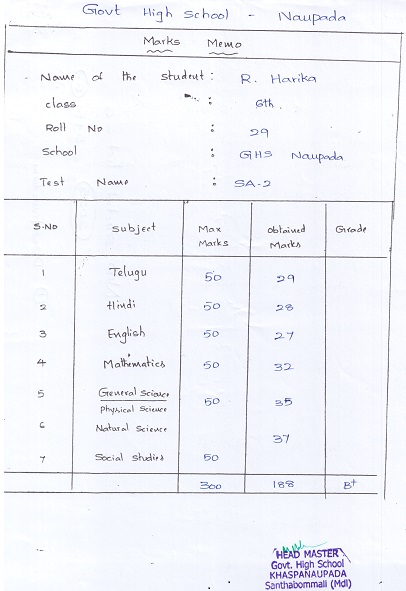 Govt High School - Naupada
Marks Memo
Name of the student : R. Harika
class : 6th
Roll No : 29
School : GHS Naupada
Test Name : SA-2
S.NO Subject Max Marks Obtained Marks Grade
1 Telugu 50 29
2 Hindi 50 28
3 English 50 27
4 Mathematics 50 32
5 General Science 50 35
Physical Science
6 Natural Science
37
7 Social Studies 50
300 188 B+
HEAD MASTER
Govt. High School
KHASPANAUPADA
Santhabommali (Mdl)